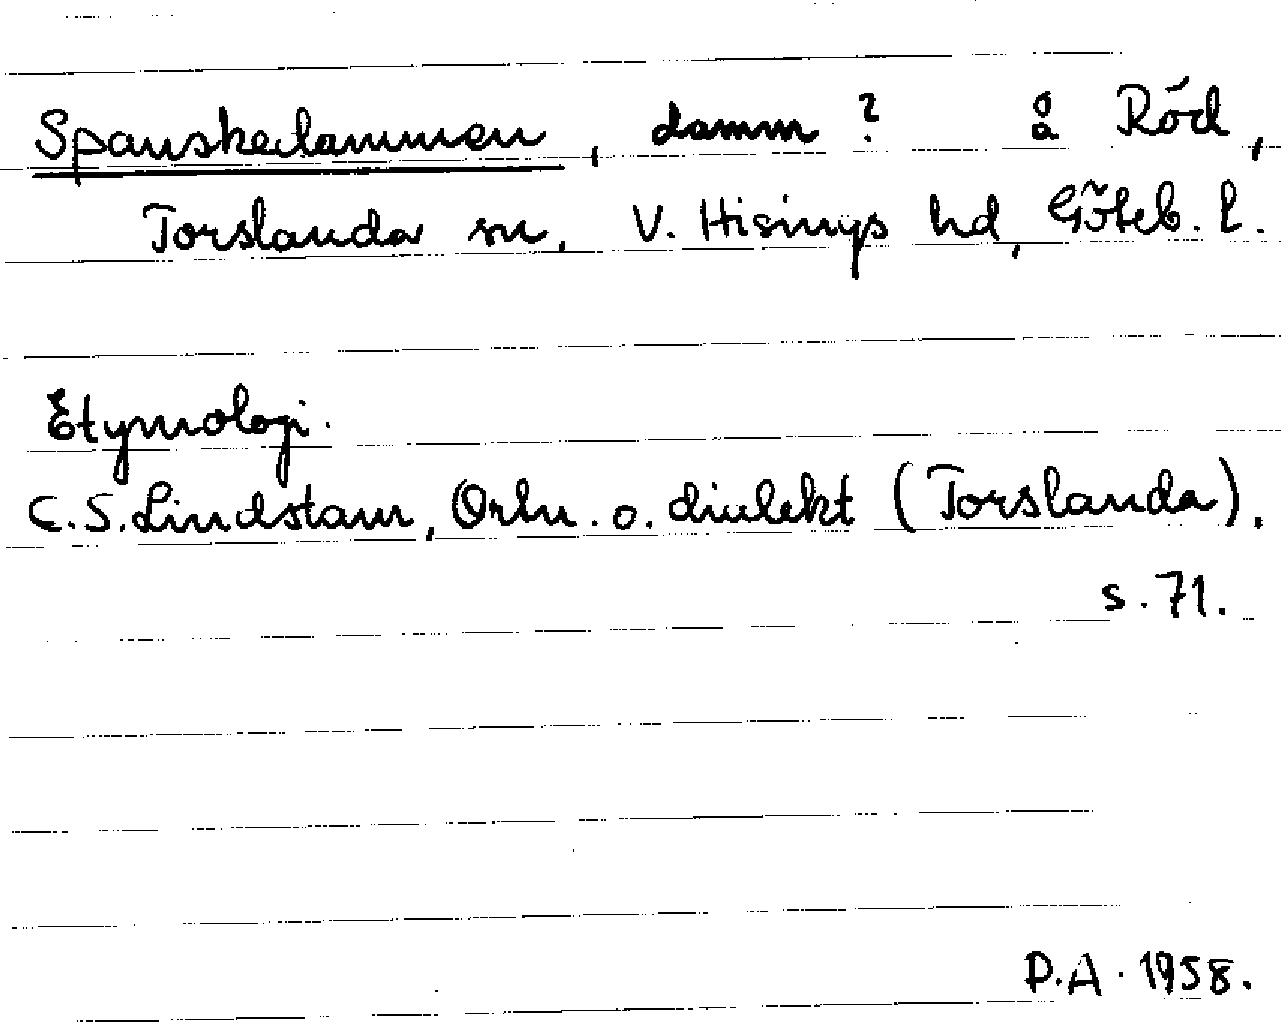 Spanskedammen, damm? å Röd,
Torslanda sn, V. Hisings hd, Göteb. l.
Etymologi.
C.S. Lindstam, Ortn. o. dialekt (Torslanda).
s. 71.
P.A. 1958.